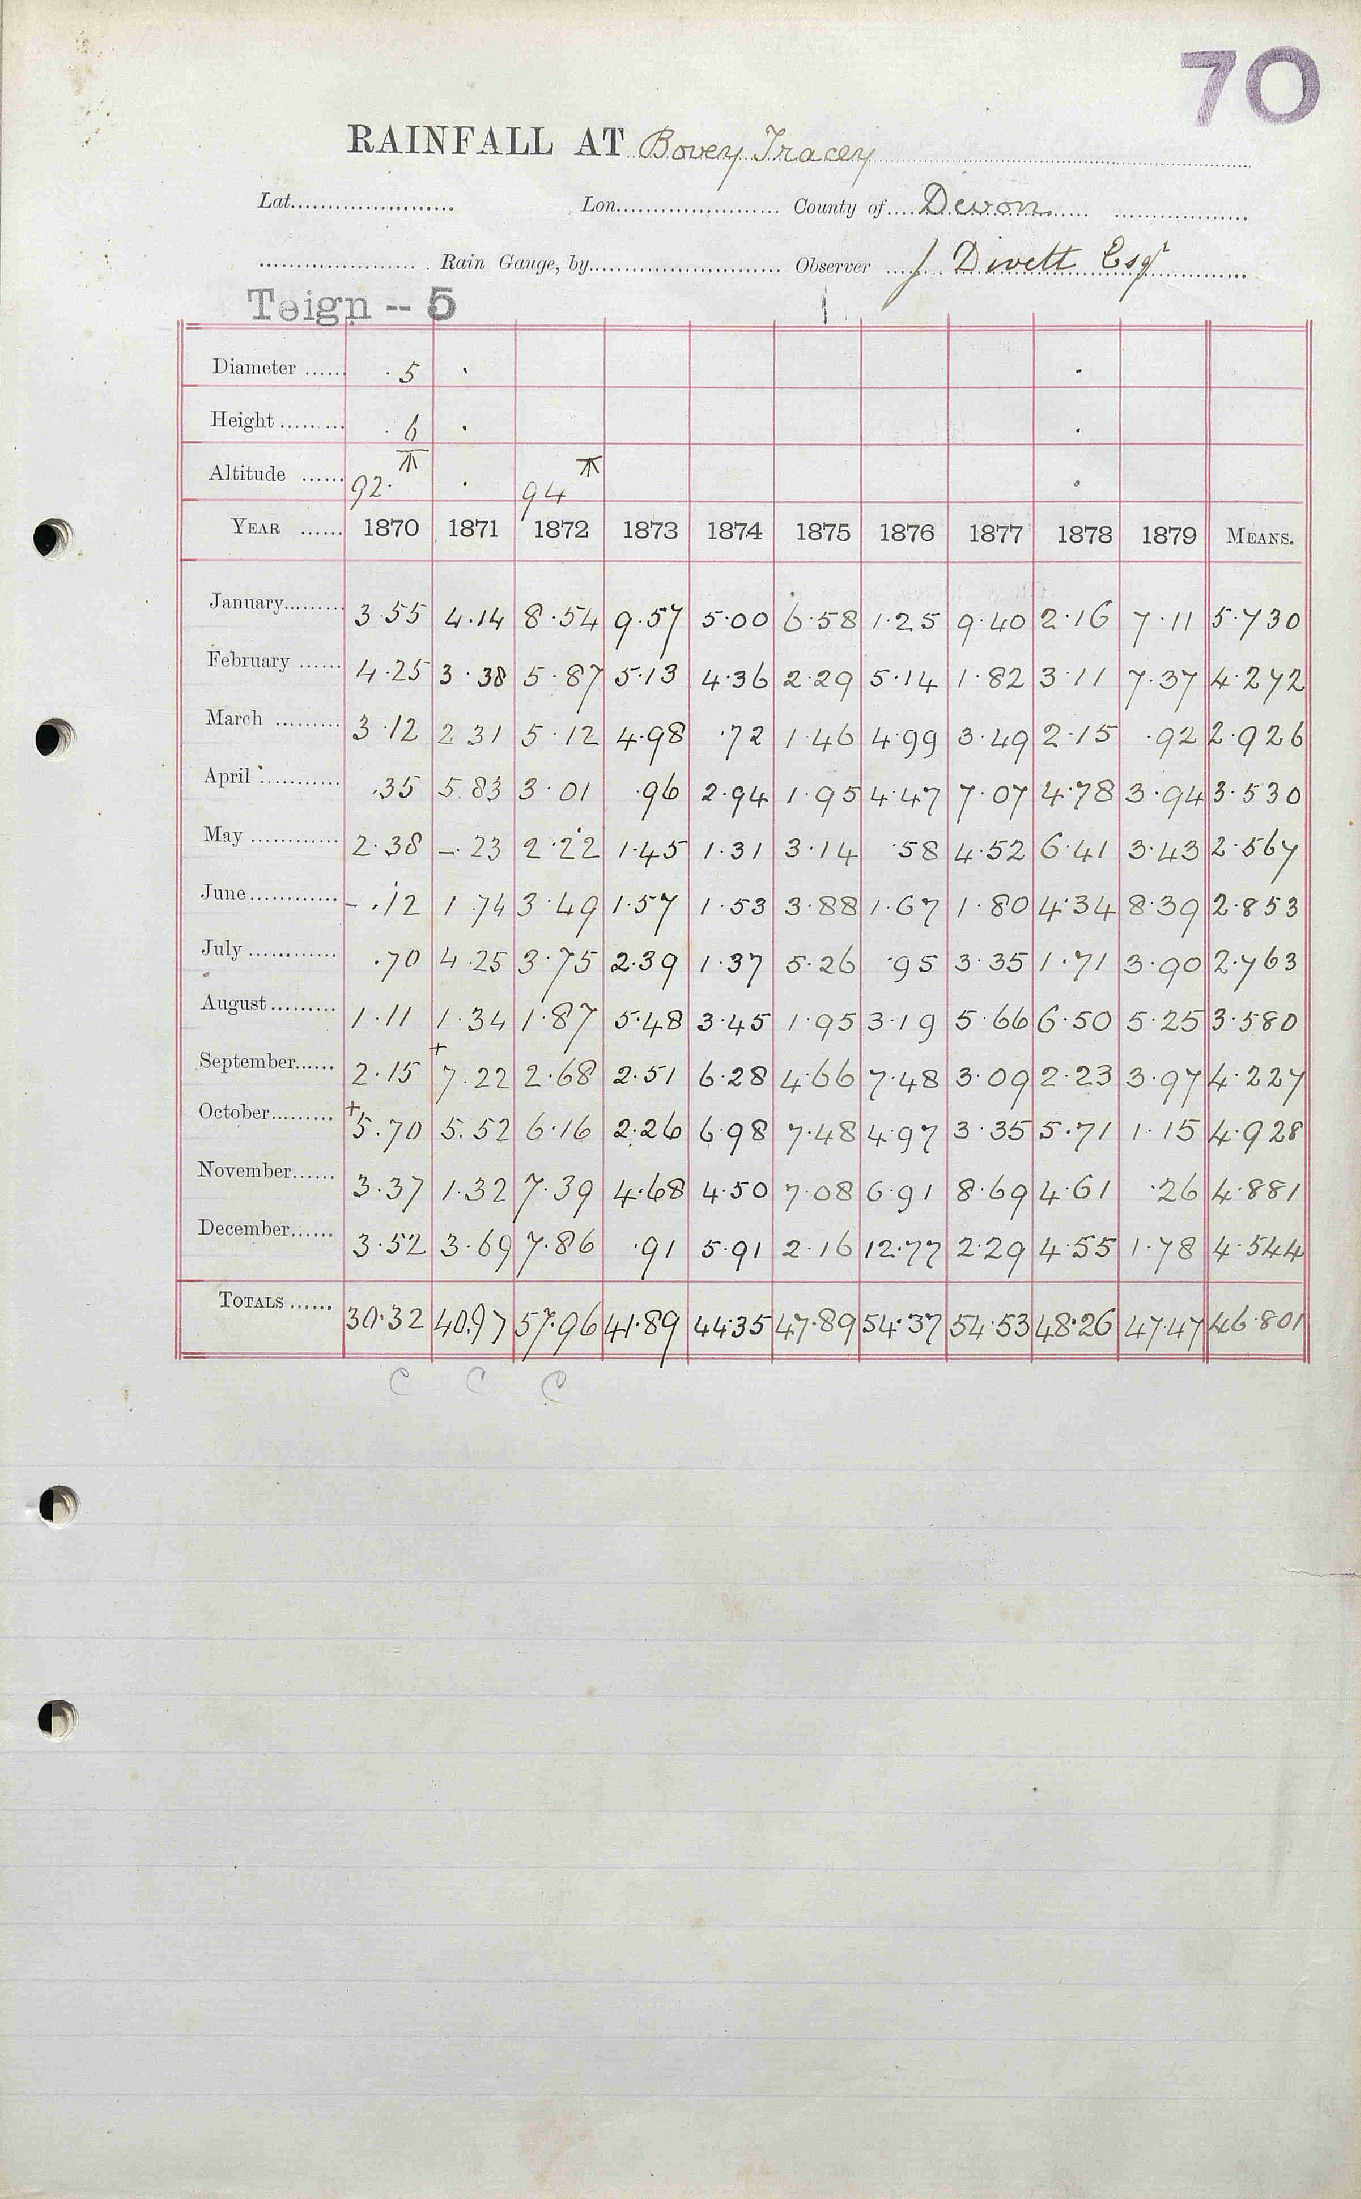 70
RAINFALL AT Bovey Tracey
Lat. Lon. County of Devon
Rain Gauge, by Observer J Divett Esqr
Teign -- 5
Diameter 5
Height 6
Altitude 92 94
YEAR 1870 1871 1872 1873 1874 1875 1876 1877 1878 1879 MEANS.
January 3.55 4.14 8.54 9.57 5.00 6.58 1.25 9.40 2.16 7.11 5.730
February 4.25 3.38 5.87 5.13 4.36 2.29 5.14 1.82 3.11 7.37 4.272
March 3.12 2.31 5.12 4.98 .72 1.46 4.99 3.49 2.15 .92 2.926
April .35 5.83 3.01 .96 2.94 1.95 4.47 7.07 4.78 3.94 3.530
May 2.38 -.23 2.22 1.45 1.31 3.14 .58 4.52 6.41 3.43 2.567
June -.12 1.74 3.49 1.57 1.53 3.88 1.67 1.80 4.34 8.39 2.853
July .70 4.25 3.75 2.39 1.37 5.26 .95 3.35 1.71 3.90 2.763
August 1.11 1.34 1.87 5.48 3.45 1.95 3.19 5.66 6.50 5.25 3.580
September 2.15 +7.22 2.68 2.51 6.28 4.66 7.48 3.09 2.23 3.97 4.227
October +5.70 5.52 6.16 2.26 6.98 7.48 4.97 3.35 5.71 1.15 4.928
November 3.37 1.32 7.39 4.68 4.50 7.08 6.91 8.69 4.61 .26 4.881
December 3.52 3.69 7.86 .91 5.91 2.16 12.77 2.29 4.55 1.78 4.544
TOTALS 30.32 40.97 57.96 41.89 44.35 47.89 54.37 54.53 48.26 47.47 46.801
C C C